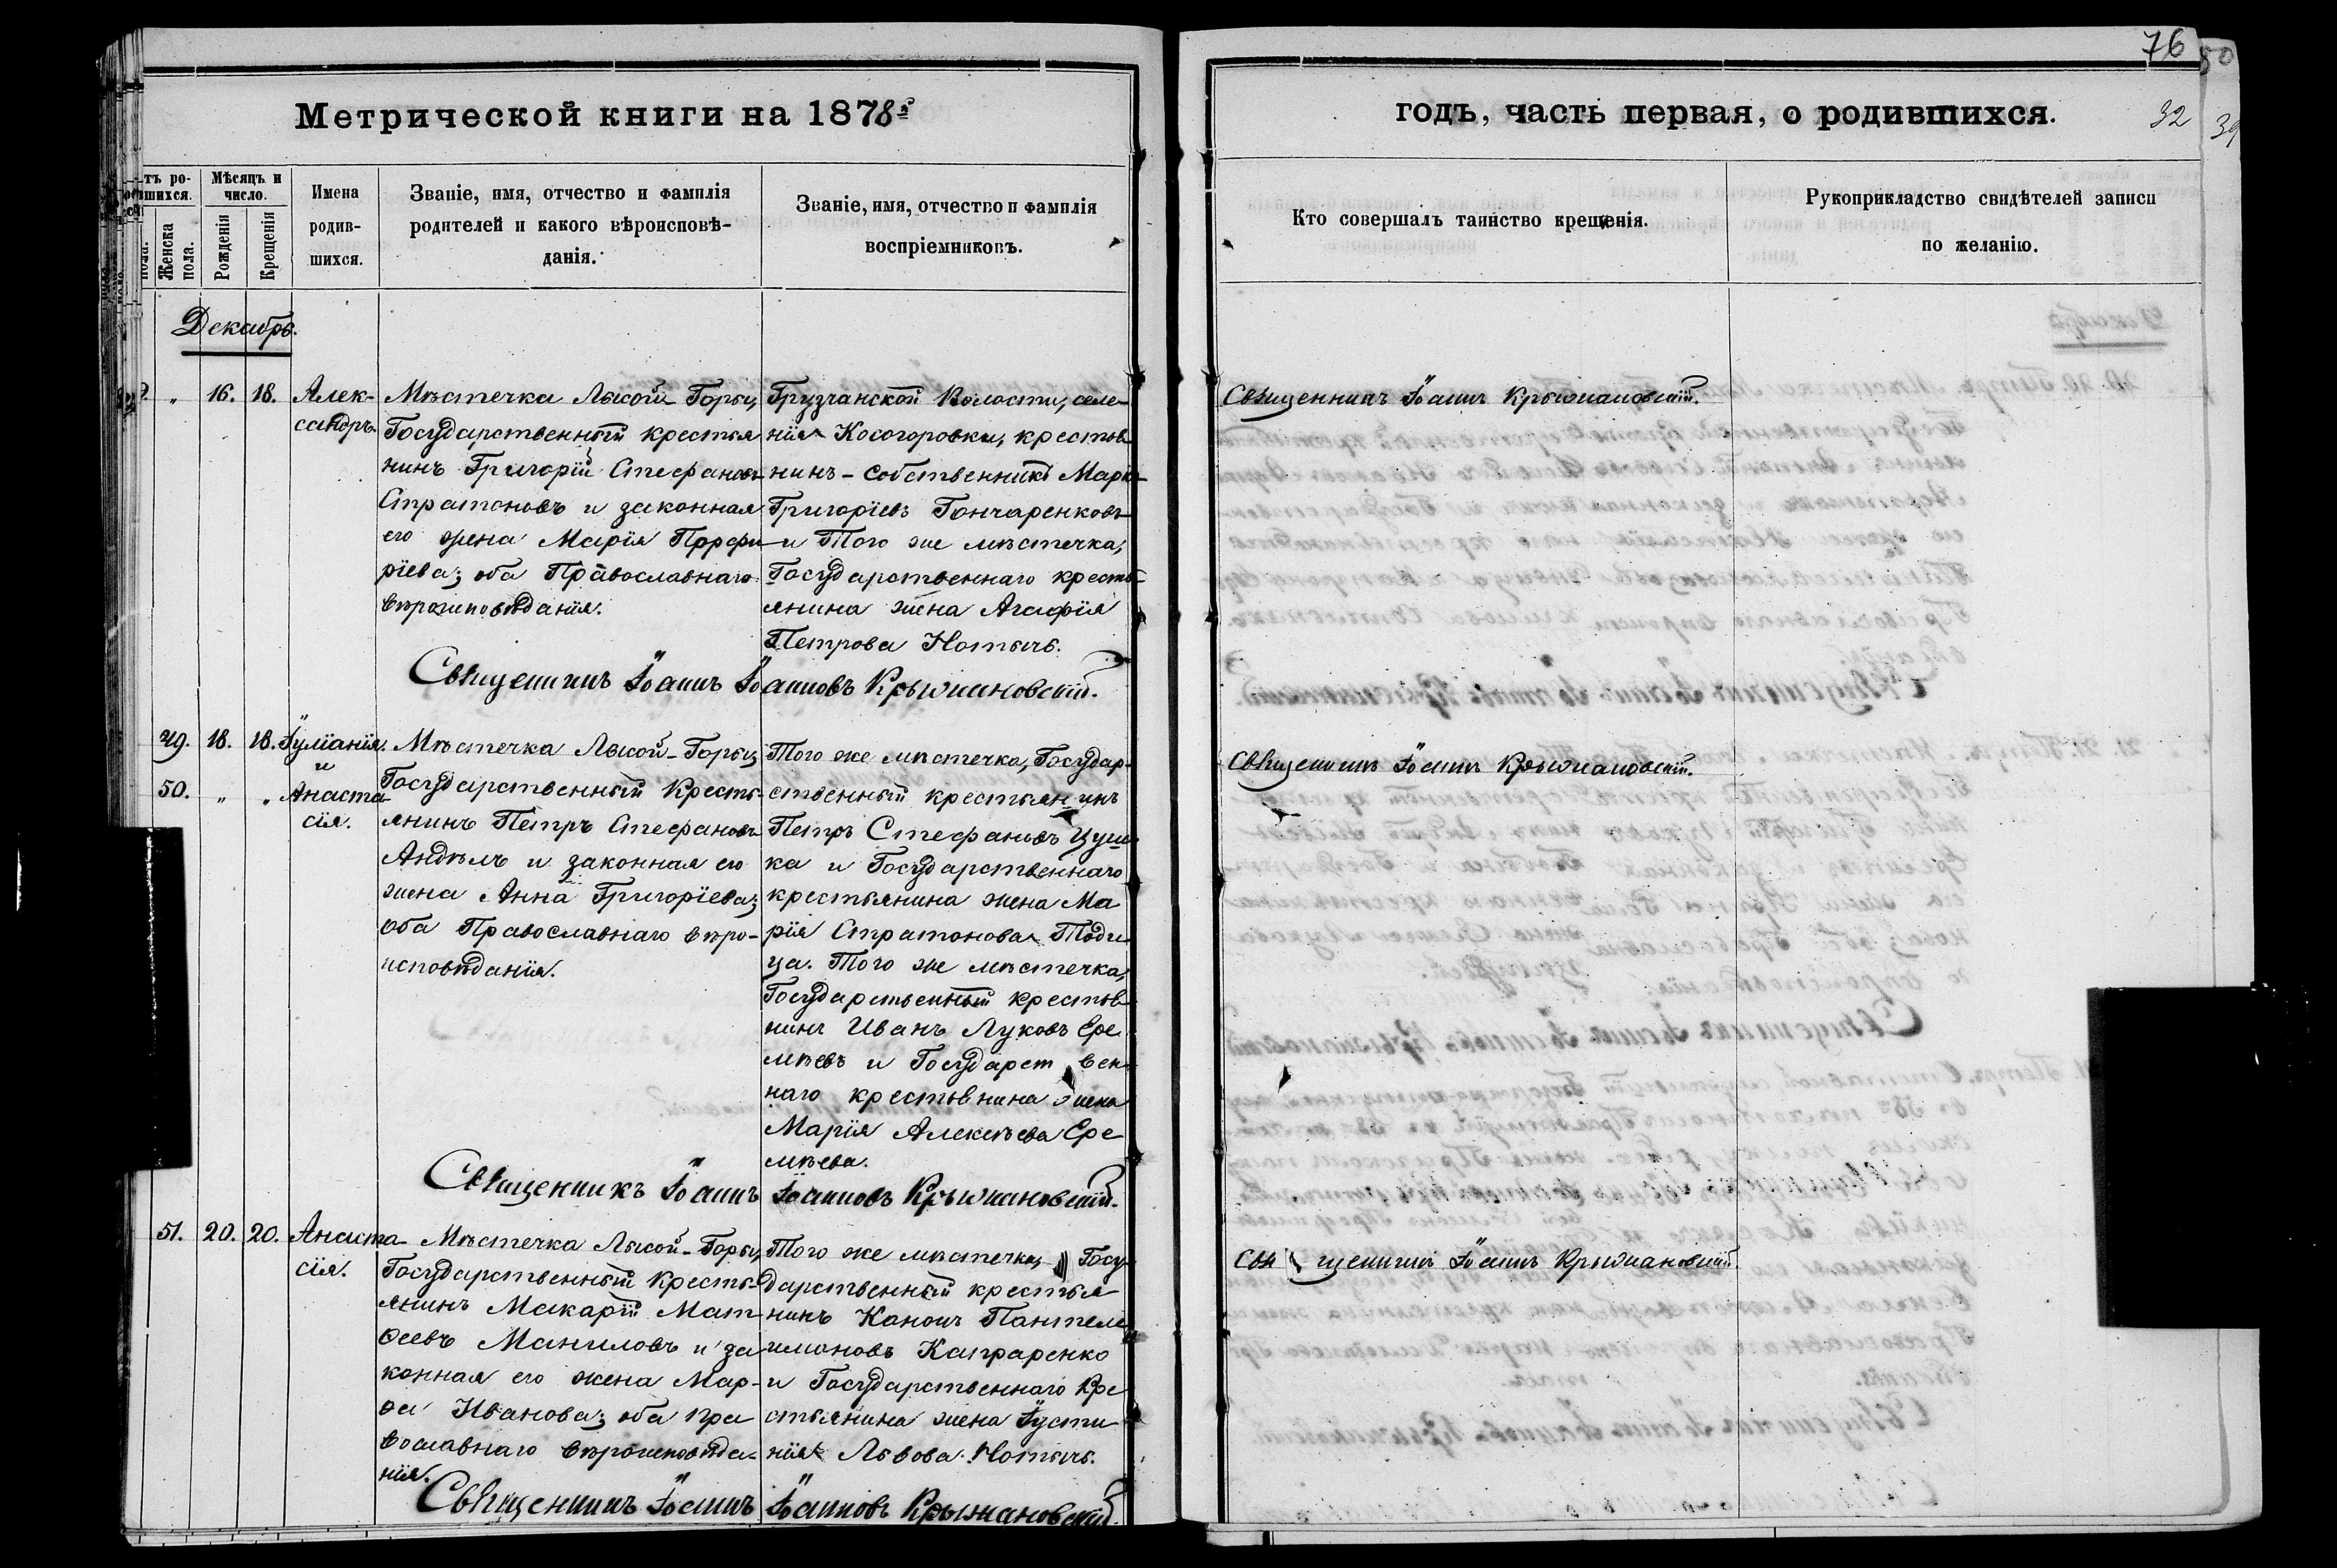 76
50
Метрической книги на 1878й
годъ, часть первая, о родившихся.
32
39
тъ ро-
шихся.
Женска пола.
Мѣсяцъ и число.
Рожденія
Крещенія
Имена
родив-
шихся.
Званіе, имя, отчество и фамилія
родителей и какого вѣроисповѣ-
данія.
Званіе, имя, отчество и фамилія
воспріемниковъ.
Кто совершалъ таинство крещенія.
Рукоприкладство свидѣтелей записи
по желанію.
Декабрь.
" 16. 18.
Алек-
сандръ.
Мѣстечка Лысой Горы,
Государственный крестья
нинъ Григорій Стефановъ
Стратоновъ и законная
его жена Марія Порфи
ріева; оба Православнаго
вѣроисповѣданія.
Грузчанской Волости, селе-
нія Косогоровки, крестья
нинъ-собственникъ Марко
Григоріевъ Гончаренковъ
и Того же мѣстечка,
Государственнаго кресть-
янина жена Агафія
Петрова Нотычъ.
Священникъ Іоаннъ Крыжановскій.
Священникъ Іоаннъ Іоанновъ Крыжановскій.
49. 18. 18.
Іуліанія.
и
50. " "
Анаста-
сія.
Мѣстечка Лысой-Горы,
Государственный Кресть-
янинъ Петръ Стефановъ
Андѣлъ и законная его
жена Анна Григоріева;
оба Православнаго вѣро-
исповѣданія.
Того же мѣстечка, Государ-
ственный крестьянинъ
Петръ Стефановъ Цуш
ка и Государственнаго
крестьянина жена Ма
рія Стратонова Тоди
ца. Того же мѣстечка,
Государственный крестья
нинъ Иванъ Луковъ Ере
мѣевъ и Государствен
наго крестьянина жена
Марія Алексѣева Ере
мѣева.
Священникъ Іоаннъ Крыжановскій.
Священникъ Іоаннъ Іоанновъ Крыжановскій.
51. 20. 20.
Анаста-
сія.
Мѣстечка Лысой-Горы,
Государственный Кресть-
янинъ Макарій Мат-
ѳеевъ Маниловъ и за
конная его жена Мар-
ѳа Иванова; оба пра
вославнаго вѣроисповѣда-
нія.
Того же мѣстечка, Госу-
дарственный крестья
нинъ Кононъ Пантеле
имоновъ Капраренко
и Государственнаго Кре
стьянина жена Іусти
нія Львова Нотычъ.
Священникъ Іоаннъ Крыжановскій
Священникъ Іоаннъ Іоанновъ Крыжановскій.